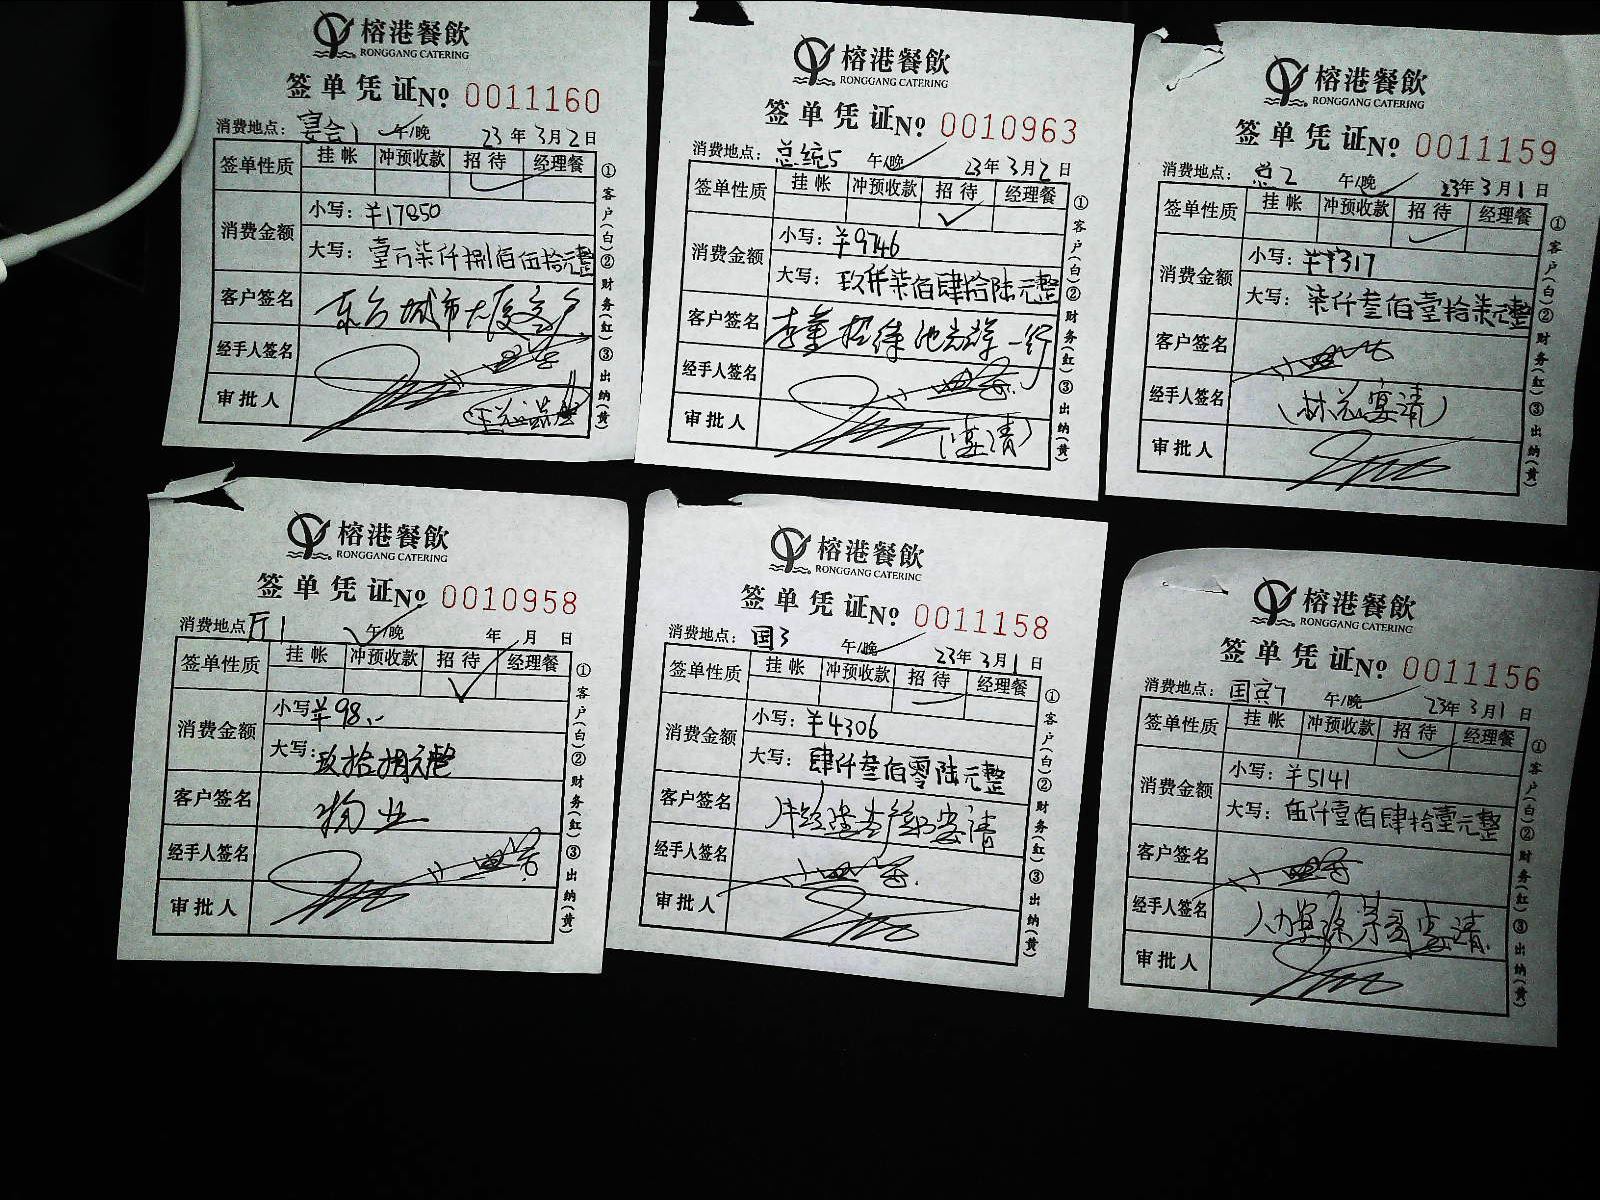 榕港餐飲
RONGGANG CATERING
签单凭证 No: 0011160
消费地点: 宴会1 午/晚 23年3月2日
签单性质 挂帐 冲预收款 招待 经理餐
消费金额 小写: ¥17850
大写: 壹万柒仟捌佰伍拾元整
客户签名
经手人签名
审批人
①客户(白)②财务(红)③出纳(黄)
榕港餐飲
RONGGANG CATERING
签单凭证 No: 0010963
消费地点: 总统5 午/晚 23年3月2日
签单性质 挂帐 冲预收款 招待 经理餐
消费金额 小写: ¥9746
大写: 玖仟柒佰肆拾陆元整
客户签名 李董招待池志辉一行
经手人签名
审批人 (宴请)
①客户(白)②财务(红)③出纳(黄)
榕港餐飲
RONGGANG CATERING
签单凭证 No: 0011159
消费地点: 总2 午/晚 23年3月1日
签单性质 挂帐 冲预收款 招待 经理餐
消费金额 小写: ¥7317
大写: 柒仟叁佰壹拾柒元整
客户签名
经手人签名 (林总宴请)
审批人
①客户(白)②财务(红)③出纳(黄)
榕港餐飲
RONGGANG CATERING
签单凭证 No: 0010958
消费地点 厅1 午/晚 年 月 日
签单性质 挂帐 冲预收款 招待 经理餐
消费金额 小写 ¥98.-
大写: 玖拾捌元整
客户签名 物业
经手人签名
审批人
①客户(白)②财务(红)③出纳(黄)
榕港餐飲
RONGGANG CATERING
签单凭证 No: 0011158
消费地点: 国3 午/晚 23年3月1日
签单性质 挂帐 冲预收款 招待 经理餐
消费金额 小写: ¥4306
大写: 肆仟叁佰零陆元整
客户签名 宴请
经手人签名
审批人
①客户(白)②财务(红)③出纳(黄)
榕港餐飲
RONGGANG CATERING
签单凭证 No: 0011156
消费地点: 国宾7 午/晚 23年3月1日
签单性质 挂帐 冲预收款 招待 经理餐
消费金额 小写: ¥5141
大写: 伍仟壹佰肆拾壹元整
客户签名
经手人签名 宴请
审批人
①客户(白)②财务(红)③出纳(黄)